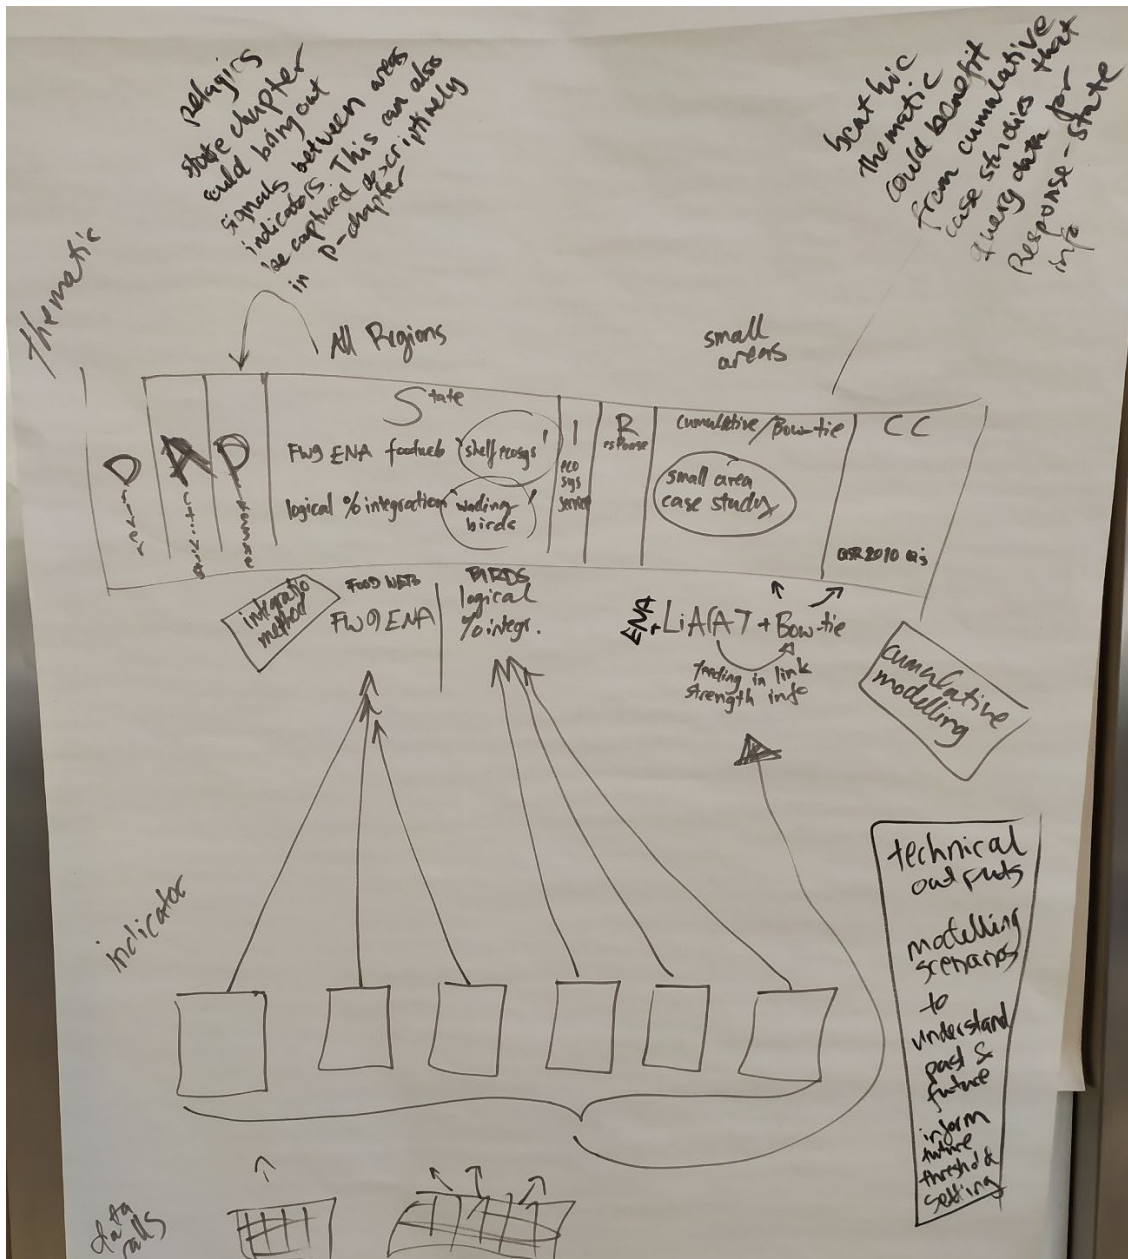 pelagics
state chapter
could bring out
signals between areas
indicators. This can also
be captured descriptively
in p-chapter
benthic
thematic
could benefit
from cumulative
case studies that
query data for
Response-state
info
thematic
All Regions
small
areas
D
river
A
P
State
FW9 ENA foodweb 'shelf ecosys'
logical % integration 'wading
birds'
I
eco
sys
R
esponse
cumulative/Bow-tie
small area
case study
CC
QSR2010 
integratio
method
FOOD WEBS
FW9 ENA
BIRDS
logical
% integr.
ENA
+ LiACAT + Bow-tie
feeding in link
strength info
cumulative
modelling
technical
outputs
modelling
scenarios
to
understand
past &
future
inform
future
threshold
setting
indicator
data
calls